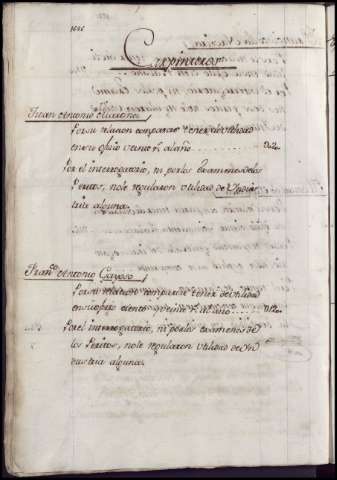 Carpinteros
Juan Antonio
Por su relacion comparece tener de utilidad
en su oficio veinte r.s al año . . . . . . . .
Por el interrogatorio, ni por los Examenes de los
Peritos, no le regularon utilidad de Yndus
tria alguna.
Fran.co Antonio Cayoso
Por su relacion comparece tener de utilidad
en su oficio ciento y veinte r.s al año . . . .
Por el interrogatorio, ni por los examenes de
los Peritos, no le regularon utilidad de Yn
dustria alguna.